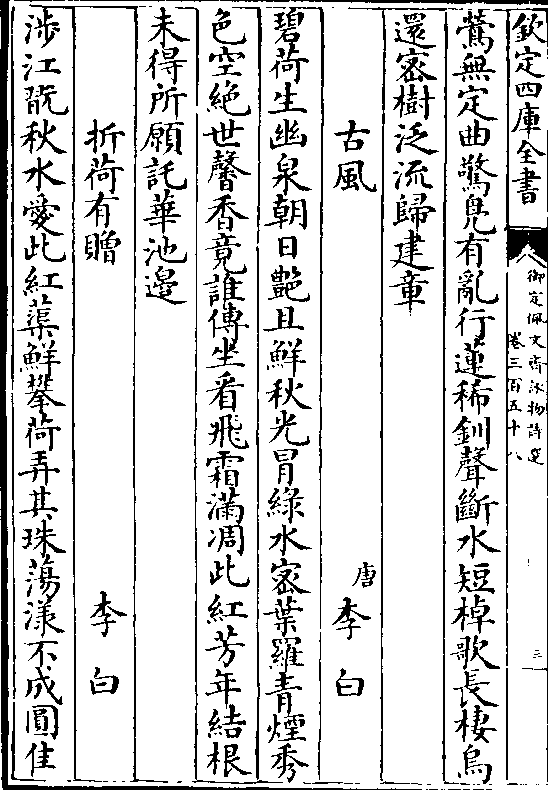 欽定四庫全書
御定佩文齋詠物詩選
卷三百五十八
三
鶯無定曲驚鳧有亂行蓮稀釧聲斷水短棹歌長棲烏
還密樹泛流歸建章
古風
唐李白
碧荷生幽泉朝日艷且鮮秋光冒綠水密葉羅青煙秀
色空絕世馨香竟誰傳坐看飛霜滿凋此紅芳年結根
未得所願託華池邊
折荷有贈
李白
涉江翫秋水愛此紅蕖鮮攀荷弄其珠蕩漾不成圓佳